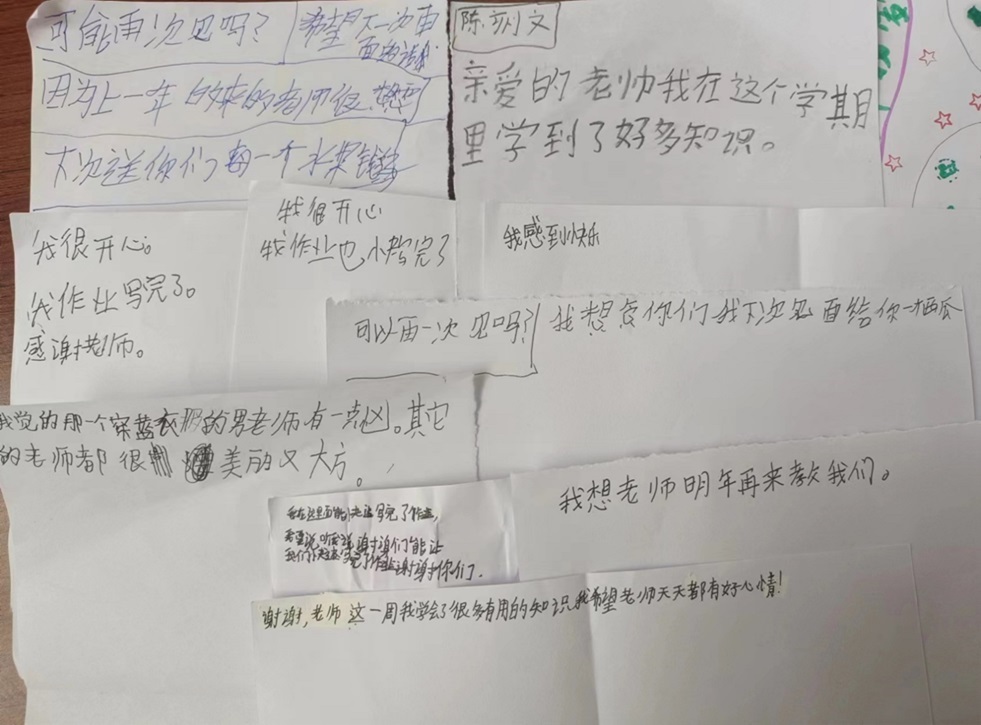 可能再次见吗？
希望下一次再
因为上一年 的来的老师很
下次送你们每一个水果
亲爱的老师我在这个学期
里学到了好多知识。
我很开心。
我作业写完了。
感谢老师。
我很开心
我作业也 完了
我感到快乐
可以再一次见吗？
我想念你们我下次见面给你一 瓜
我觉的那一个穿蓝衣服的男老师有一点凶。其它
的老师都很 美丽又大方。
我想老师明年再来教我们。
写完了作业，
谢谢 们能让
谢谢你们.
谢谢，老师这一周我学会了很多有用的知识我希望老师天天都有好心情！